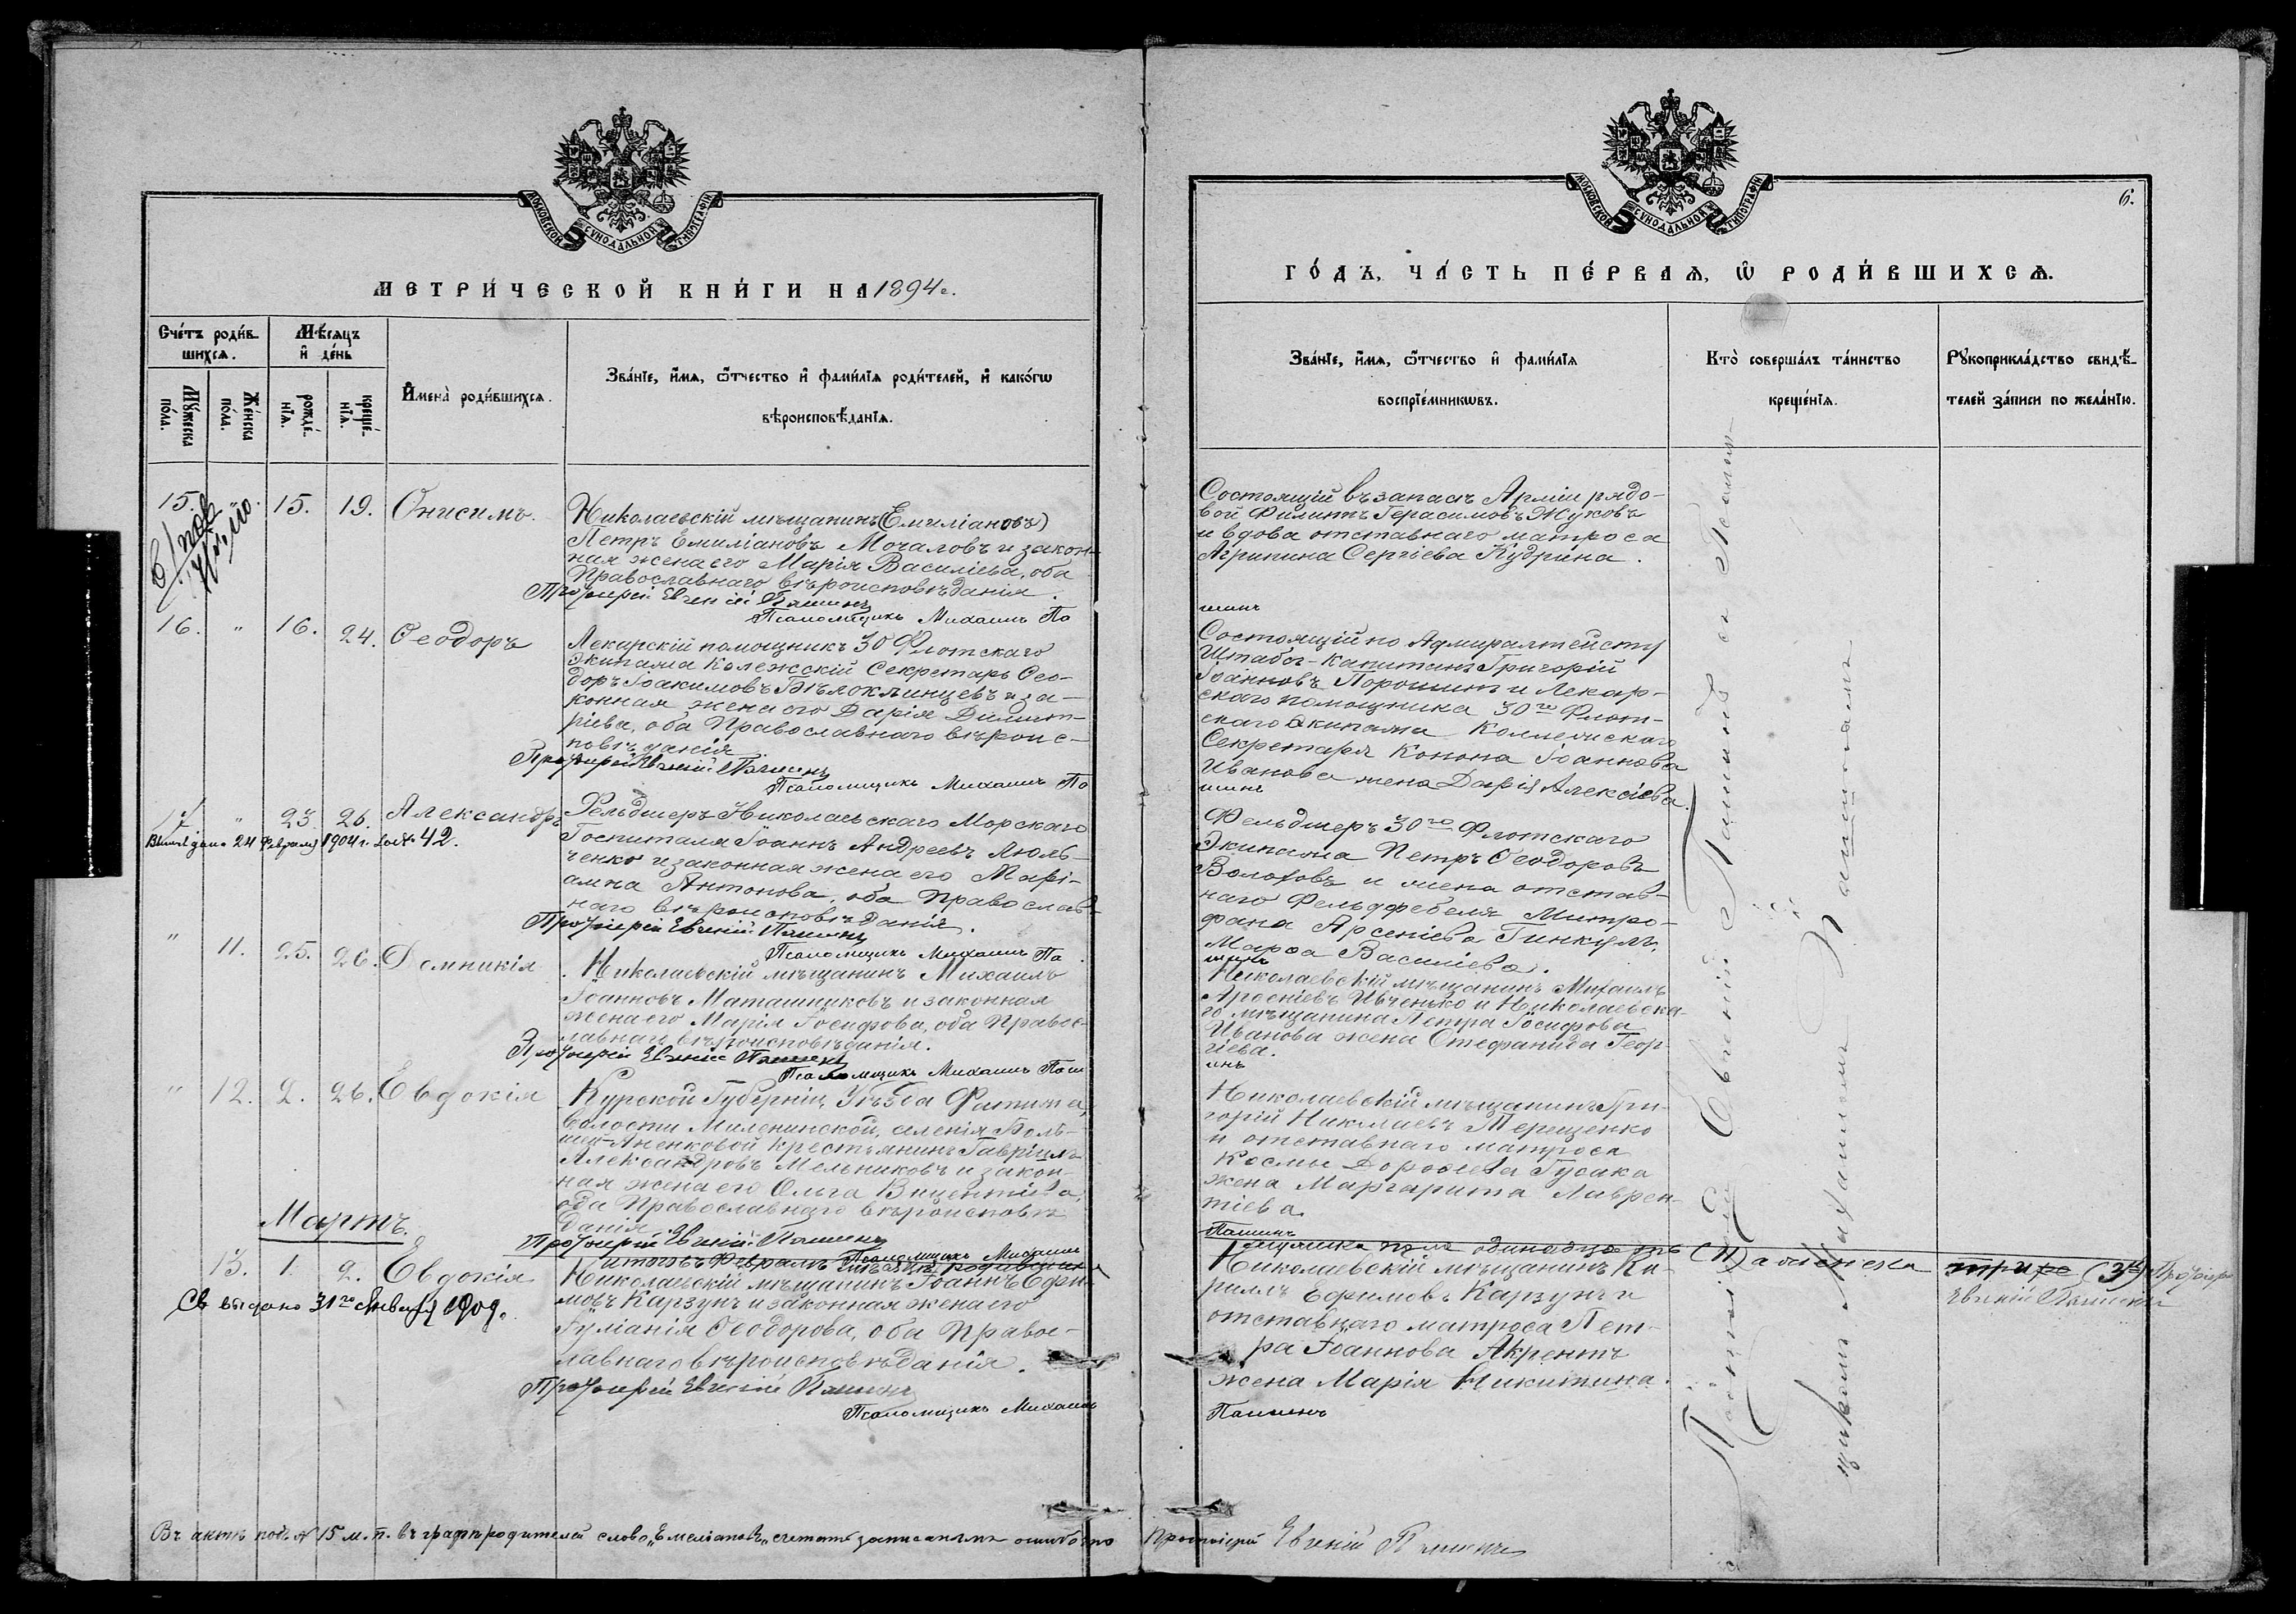 МОСКОВСКОЙ СѴНОДАЛЬНОЙ ТИПОГРАФІИ
МЕТРИ́ЧЕСКОЙ КНИ́ГИ НА 1894 г.
Сче́тъ роди́в-
шихсѧ.
Мѣ́сѧцъ
и҆ де́нь
Мꙋ́жеска
по́ла.
Же́нска
по́ла.
рожде́-
нїѧ.
креще́-
нїѧ.
И҆мена̀ роди́вшихсѧ.
Зва́нїе, и҆́мѧ, ѻ҆́тчество и҆ фами́лїѧ роди́телей, и҆ како́гѡ
вѣроисповѣ́данїѧ.
15. 15. 19. Онисимъ.
Николаевскій мѣщанинъ (Емиліановъ)
Петръ Емиліановъ Мочаловъ и закон-
ная жена его Марія Василіева, оба
Православнаго вѣроисповѣданія.
Протоіерей Евгеній Пашинъ
Псаломщикъ Михаилъ Па
16. " 16. 24. Ѳеодоръ
Лекарскій помощникъ 30 Флотскаго
Экипажа Колежскій Секретарь Ѳео-
доръ Іоакимовъ Бѣлоклинцевъ и за-
конная жена его Дарія Димит-
ріева, оба Православнаго вѣроис-
повѣданія
Протоіерей Евгеній Пашинъ
Псаломщикъ Михаилъ Па
17 " 23 26. Александръ
Выдано 24 Февраля 1904 г. за № 42.
Фельдшеръ Николаевскаго Морскаго
Госпиталя Іоаннъ Андреевъ Люль-
ченко и законная жена его Марі-
амна Антонова, оба Православ-
наго вѣроисповѣданія.
Протоіерей Евгеній Пашинъ
Псаломщикъ Михаилъ Па
" 11. 25. 26. Домникія
Николаевскій мѣщанинъ Михаилъ
Іоанновъ Маташниковъ и законная
жена его Марія Іосифова, оба Правос-
лавнаго вѣроисповѣданія.
Протоіерей Евгеній Пашинъ
Псаломщикъ Михаилъ Паш
" 12. 2. 26. Евдокія
Курской Губерніи, Уѣзда Фатижа,
Волости Миленинской, селенія Боль-
шей-Аненковой крестьянинъ Гавріилъ
Александровъ Мельниковъ и закон-
ная жена его Ольга Викентіева,
оба Православнаго вѣроисповѣ-
данія
Протоіерей Евгеній Пашинъ
Псаломщикъ Михаилъ
Мартъ.
13. 1. 2. Евдокія
Св выдано 31го Января 1909.
Николаевскій мѣщанинъ Іоаннъ Ефи-
мовъ Карзунъ и законная жена его
Іуліанія Ѳеодорова, оба Правос-
лавнаго вѣроисповѣданія.
Протоіерей Евгеній Пашинъ
Псаломщикъ Михаилъ
Въ актѣ подъ № 15 м. п. въ графѣ родителей слово „Емеліановъ" считать записаннымъ ошибочно
МОСКОВСКОЙ СѴНОДАЛЬНОЙ ТИПОГРАФІИ
6.
ГО́ДЪ, ЧА́СТЬ ПЕ́РВАѦ, Ѡ҆ РОДИ́ВШИХСѦ.
Зва́нїе, и҆́мѧ, ѻ҆́тчество и҆ фами́лїѧ
воспрїе́мникѡвъ.
Кто̀ соверша́лъ та́инство
креще́нїѧ.
Рꙋкоприкла́дство свидѣ́-
телей за́писи по жела́нїю.
Состоящій въ запасѣ Арміи рядо-
вой Филиппъ Герасимовъ Жуковъ
и вдова отставнаго матроса
Агрипина Сергіева Кудрина.
шинъ
Состоящій по Адмиралтейству
Штабсъ-Капитанъ Григорій
Іоанновъ Порошинъ и Лекар-
скаго помощника 30го Флот-
скаго Экипажа Коллежскаго
Секретаря Конона Іоаннова
Иванова жена Дарія Алексіева.
шинъ
Фельдшеръ 30го Флотскаго
Экипажа Петръ Ѳеодоровъ
Волоховъ и жена отстав-
наго Фельдфебеля Митро-
фана Арсеніева Гинкулъ,
Марѳа Василіева.
шинъ
Николаевскій мѣщанинъ Михаилъ
Арсеніевъ Ивченько и Николаевска-
го мѣщанина Петра Іосифова
Иванова жена Стефанида Геор-
гіева.
инъ
Николаевскій мѣщанинъ Гри-
горій Николаевъ Терещенко
и отставнаго матроса
Космы Дороѳеева Гусака
жена Маргарита Лаврен-
тіева.
Пашинъ
Николаевскій мѣщанинъ Ки-
риллъ Ефимовъ Карзунъ и
отставнаго матроса Пет-
ра Іоаннова Акрентъ
жена Марія Никитина.
Пашинъ
Протоіерей Евгеній Пашинъ съ Псалом-
щикомъ Михаиломъ Пашинымъ
Протоіерей
Евгеній Пашинъ
Протоіерей Евгеній Пашинъ